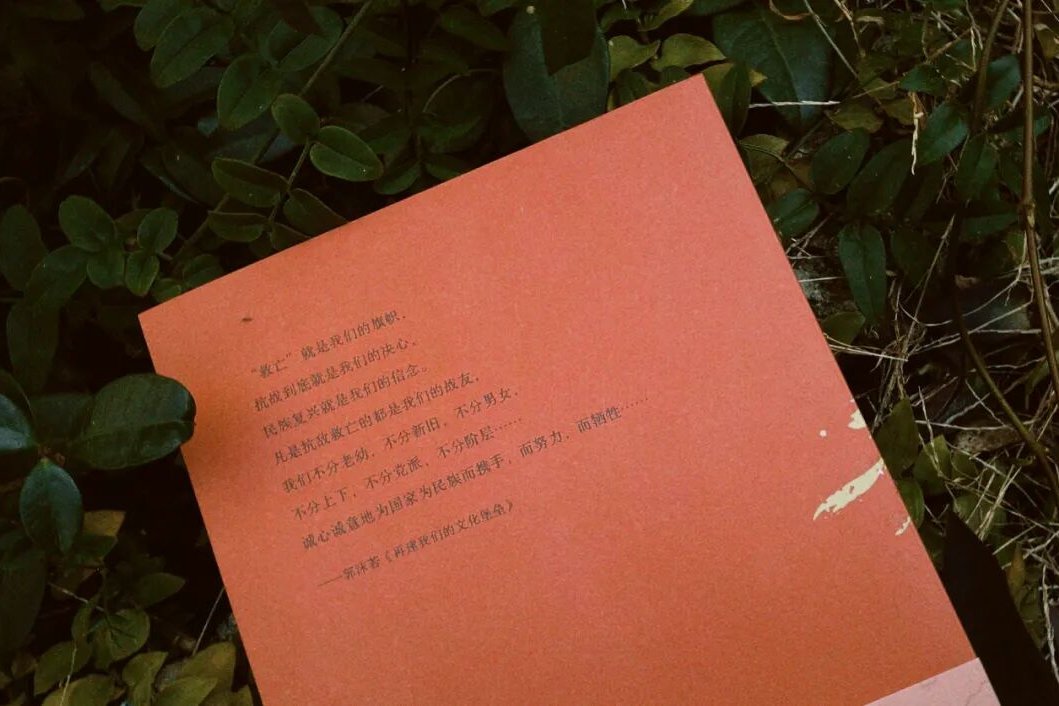 “救亡”就是我们的旗帜，
抗战到底就是我们的决心，
民族复兴就是我们的信念。
凡是抗敌救亡的都是我们的战友，
我们不分老幼，不分新旧，不分男女，
不分上下，不分党派，不分阶层……
诚心诚意地为国家为民族而携手，而努力，而牺牲……
——郭沫若《再建我们的文化堡垒》